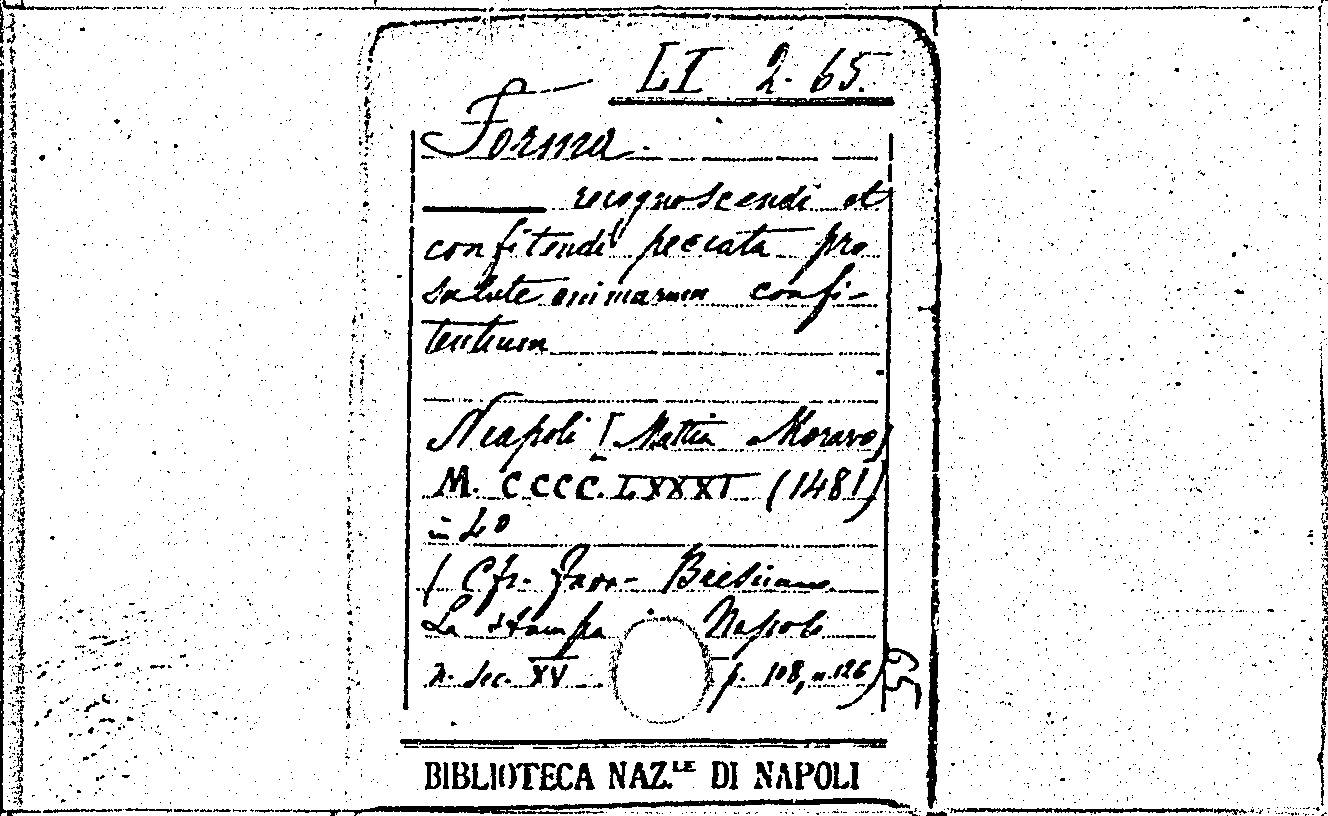 LI 2. 65.
Forma
recognoscendi et
confitendi peccata pro
salute animarum confi-
tentium
Neapoli [Mattia Moravo]
M. CCCC. LXXXI (1481)
in 4º
(Cfr. Fava - Bresciano
La stampa Napoli
n. sec. XV p. 108, n. 126)
59
BIBLIOTECA NAZ.LE DI NAPOLI